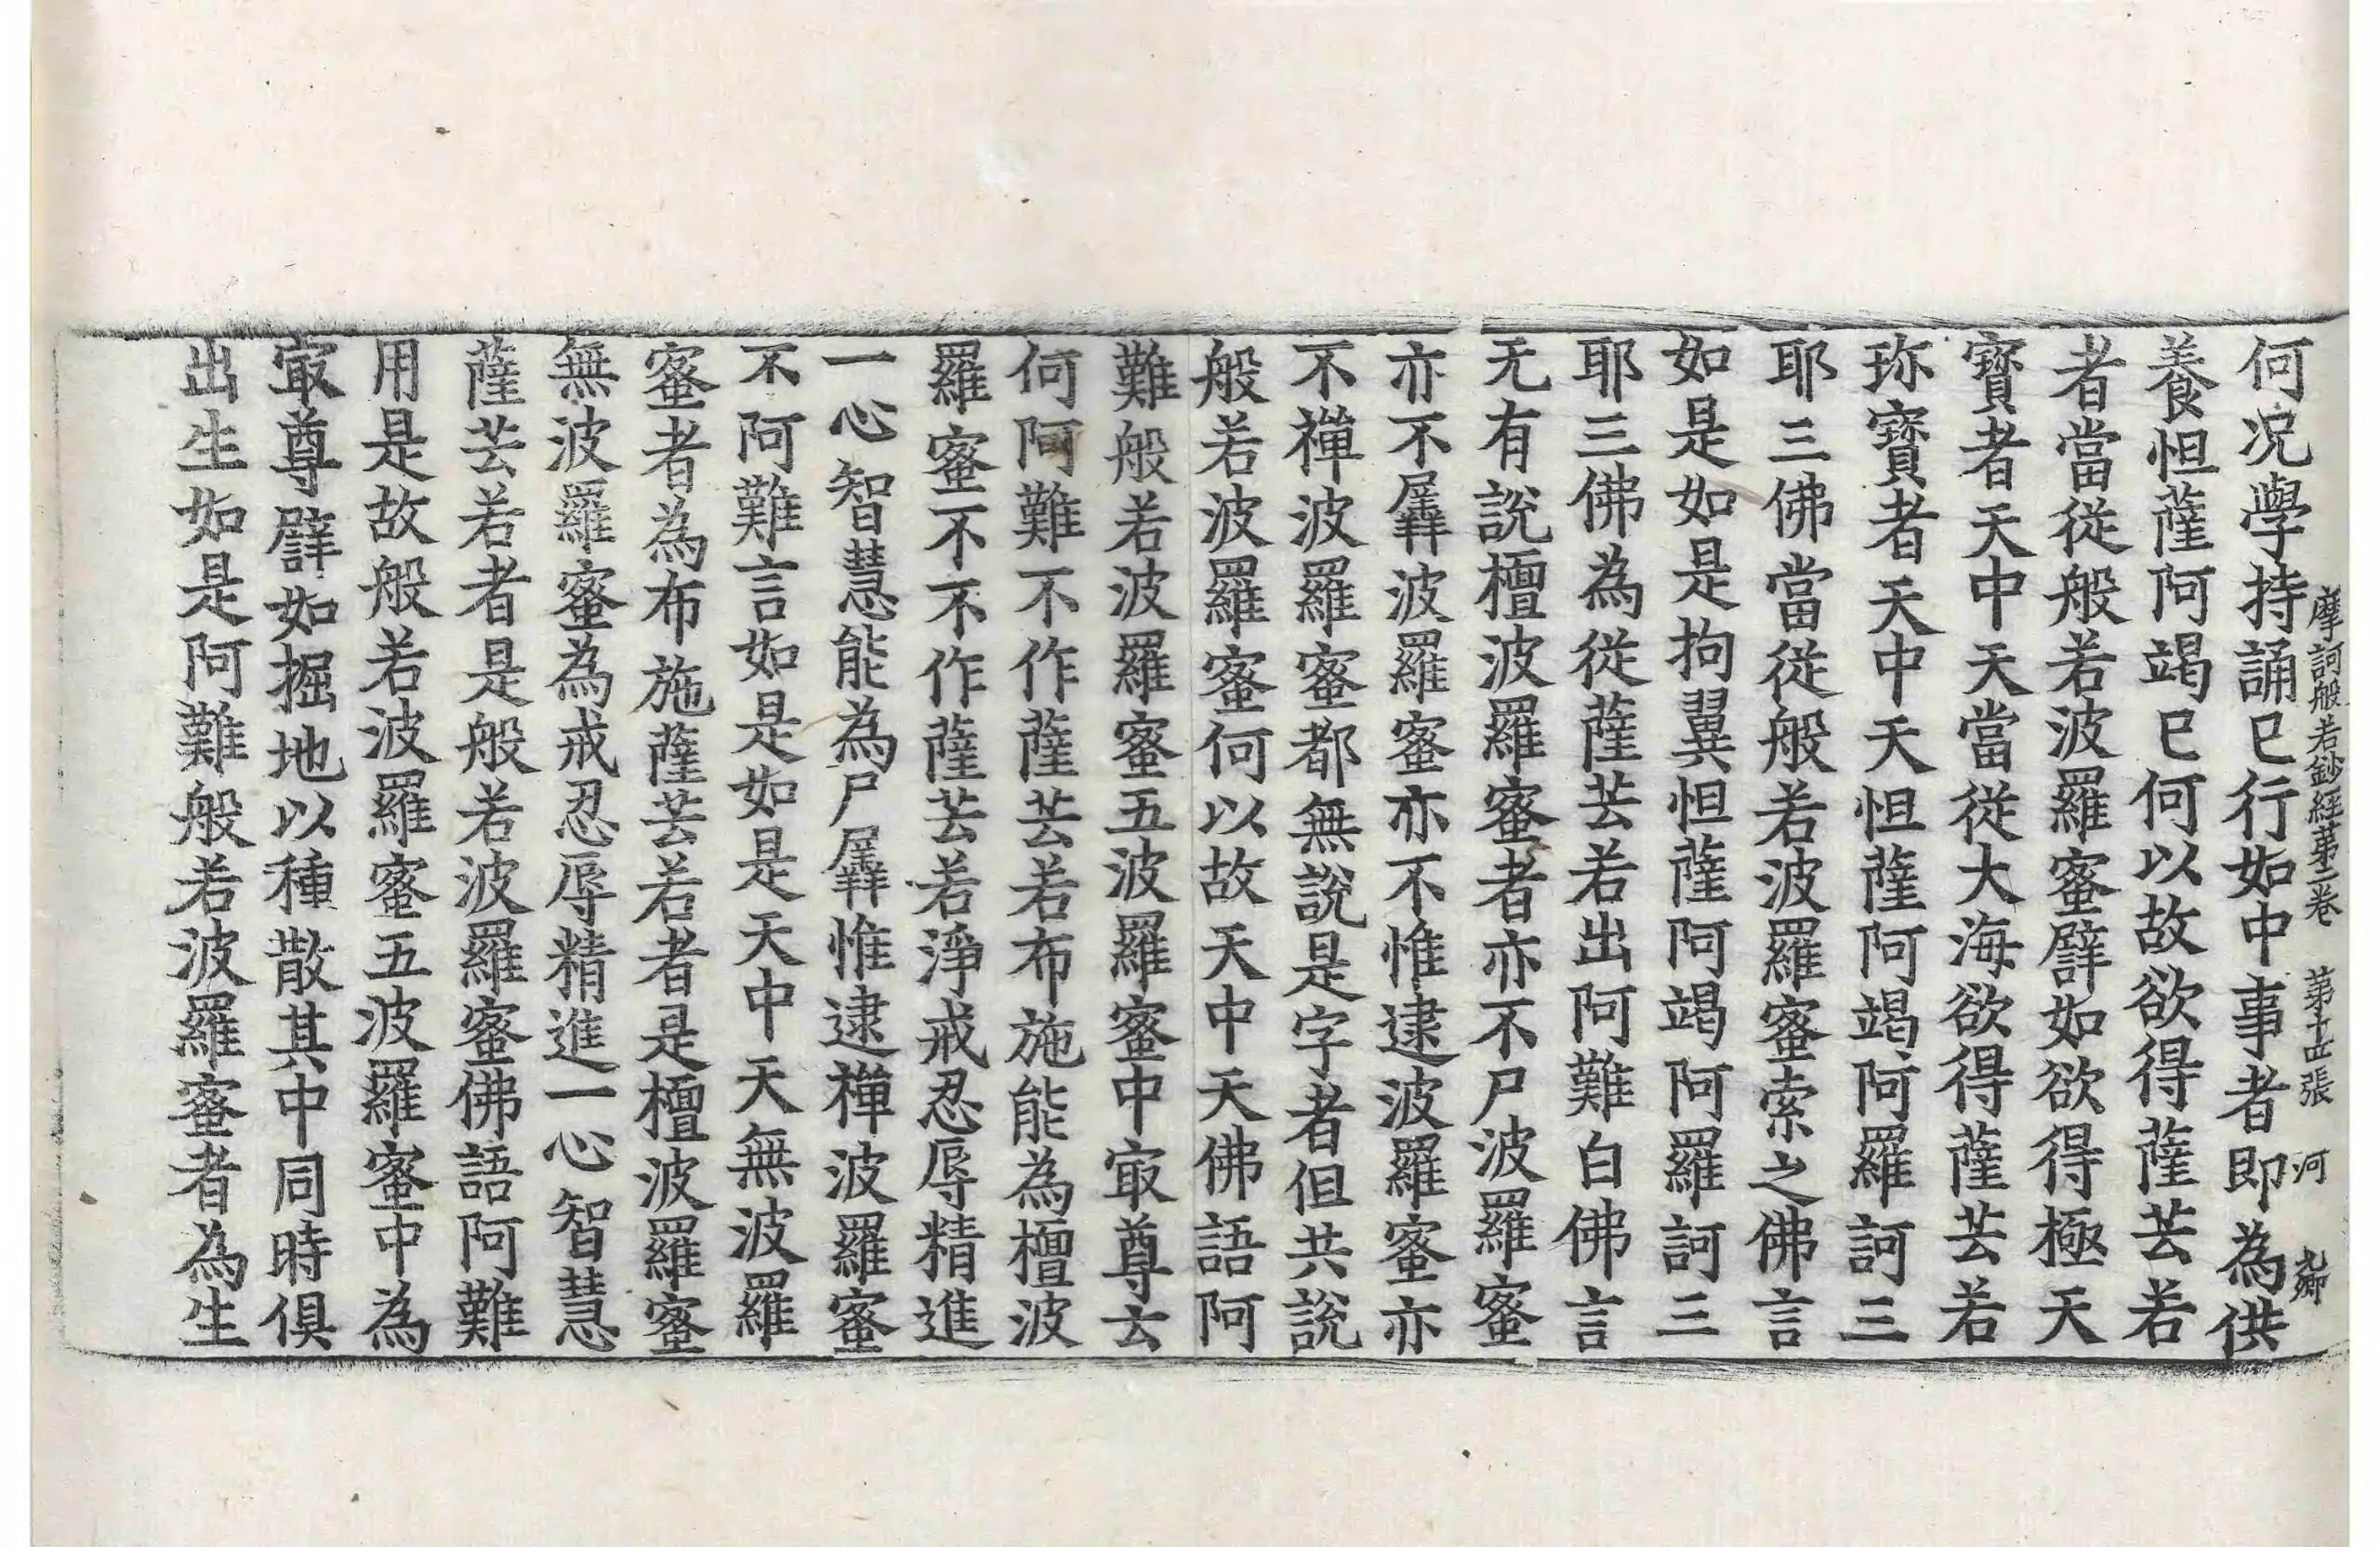 摩訶般若鈔經第二卷　第十四張　河　光卿
何况學持誦已行如中事者即為供
養怛薩阿竭已何以故欲得薩芸若
者當從般若波羅蜜譬如欲得極天
寶者天中天當從大海欲得薩芸若
珎寶者天中天怛薩阿竭阿羅訶三
耶三佛當從般若波羅蜜索之佛言
如是如是拘翼怛薩阿竭阿羅訶三
耶三佛為從薩芸若出阿難白佛言
无有說檀波羅蜜者亦不尸波羅蜜
亦不羼波羅蜜亦不惟逮波羅蜜亦
不禪波羅蜜都無說是字者但共說
般若波羅蜜何以故天中天佛語阿
難般若波羅蜜五波羅蜜中㝡尊云
何阿難不作薩芸若布施能為檀波
羅蜜不不作薩芸若淨戒忍辱精進
一心智慧能為尸羼惟逮禪波羅蜜
不阿難言如是如是天中天無波羅
蜜者為布施薩芸若者是檀波羅蜜
無波羅蜜為戒忍辱精進一心智慧
薩芸若者是般若波羅蜜佛語阿難
用是故般若波羅蜜五波羅蜜中為
㝡尊譬如掘地以種散其中同時俱
出生如是阿難般若波羅蜜者為生